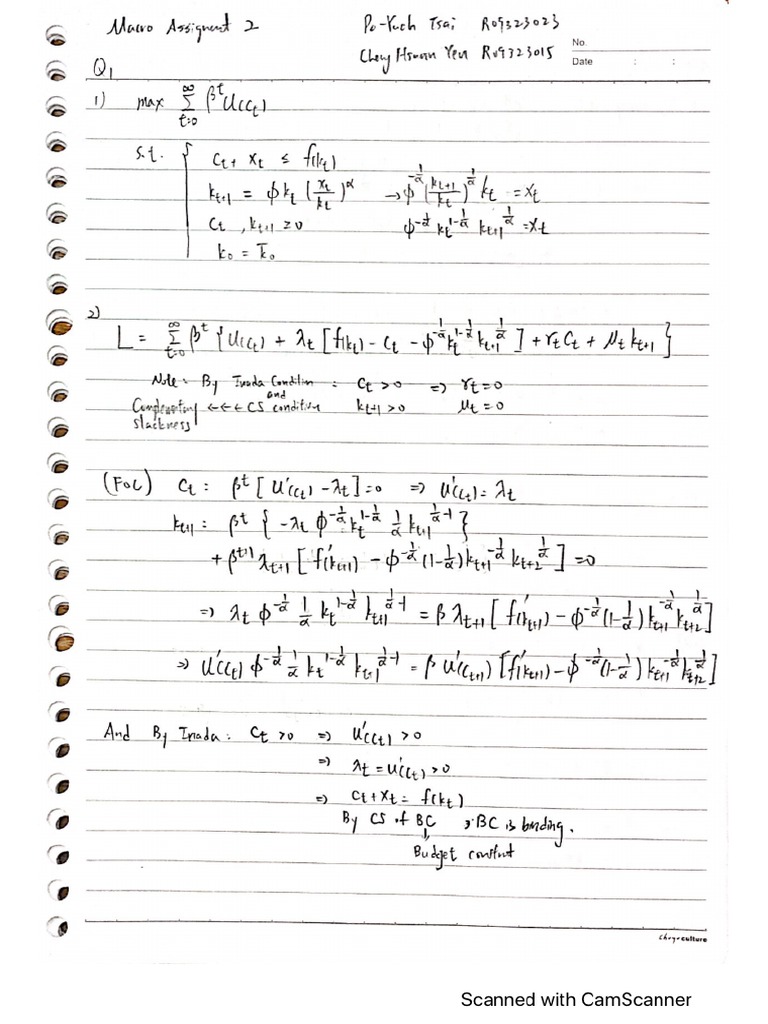 Macro Assignment 2
Po-Yuch Tsai R09323023
Cheng Hsuan Yen R09323015
No.
Date : :
Q1
1) max Σ_{t=0}^{∞} β^t U(c_t)
s.t. { c_t + x_t ≤ f(k_t)
k_{t+1} = φ k_t (x_t/k_t)^α → φ^{-1/α} (k_{t+1}/k_t)^{1/α} k_t = x_t
c_t, k_{t+1} ≥ 0 φ^{-1/α} k_t^{1-1/α} k_{t+1}^{1/α} = x_t
k_0 = k̄_0
2)
L = Σ_{t=0}^{∞} β^t { U(c_t) + λ_t [f(k_t) - c_t - φ^{-1/α} k_t^{1-1/α} k_{t+1}^{1/α}] + r_t c_t + μ_t k_{t+1} }
Note: By Inada Condition : c_t > 0 ⇒ r_t = 0
and
Complementary ← ← ← CS condition k_{t+1} > 0 μ_t = 0
slackness
(FOC) c_t : β^t [U'(c_t) - λ_t] = 0 ⇒ U'(c_t) = λ_t
k_{t+1} : β^t { -λ_t φ^{-1/α} k_t^{1-1/α} 1/α k_{t+1}^{1/α-1} }
+ β^{t+1} λ_{t+1} [f'(k_{t+1}) - φ^{-1/α} (1-1/α) k_{t+1}^{-1/α} k_{t+2}^{1/α}] = 0
⇒ λ_t φ^{-1/α} 1/α k_t^{1-1/α} k_{t+1}^{1/α-1} = β λ_{t+1} [f'(k_{t+1}) - φ^{-1/α} (1-1/α) k_{t+1}^{-1/α} k_{t+2}^{1/α}]
⇒ U'(c_t) φ^{-1/α} 1/α k_t^{1-1/α} k_{t+1}^{1/α-1} = β U'(c_{t+1}) [f'(k_{t+1}) - φ^{-1/α} (1-1/α) k_{t+1}^{-1/α} k_{t+2}^{1/α}]
And By Inada : c_t > 0 ⇒ U'(c_t) > 0
⇒ λ_t = U'(c_t) > 0
⇒ c_t + x_t = f(k_t)
By CS of BC , BC is binding.
↓
Budget constraint
Scanned with CamScanner